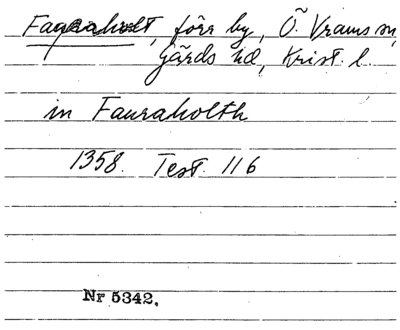 Fagraholt, förr by, Ö. Vrams sn,
Gärds hd, Krist. l.
in Fauraholth
1358. Test. 116
Nr 5342.